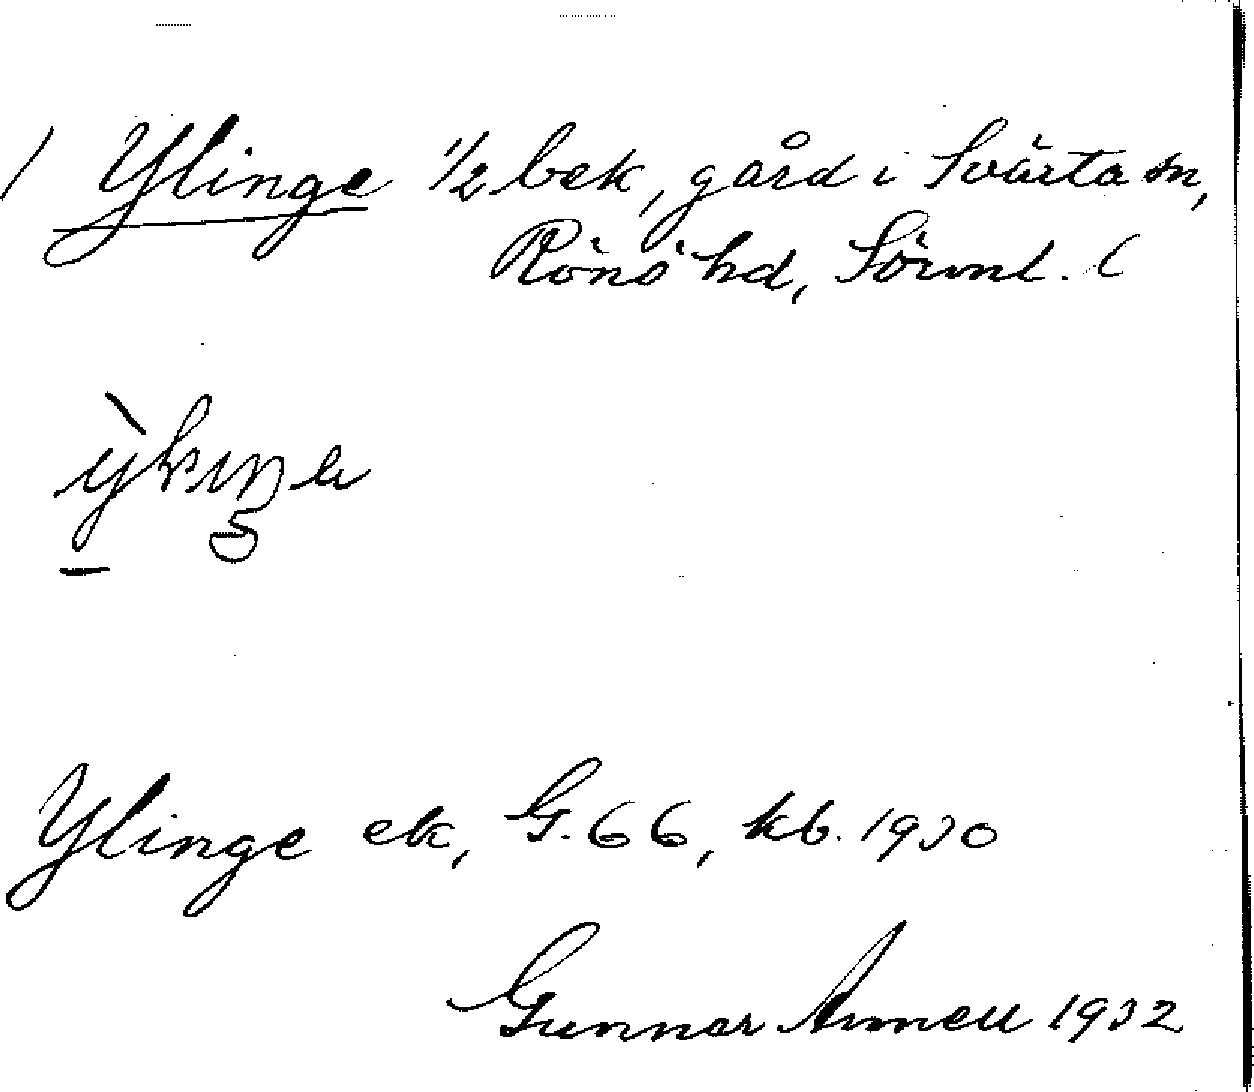 / Ylinge 1/2 bek, gård i Svärta sn,
Rönö hd, Sörml. (
Ylinge ek, G. 66, kb. 1930
Gunnar Annell 1932